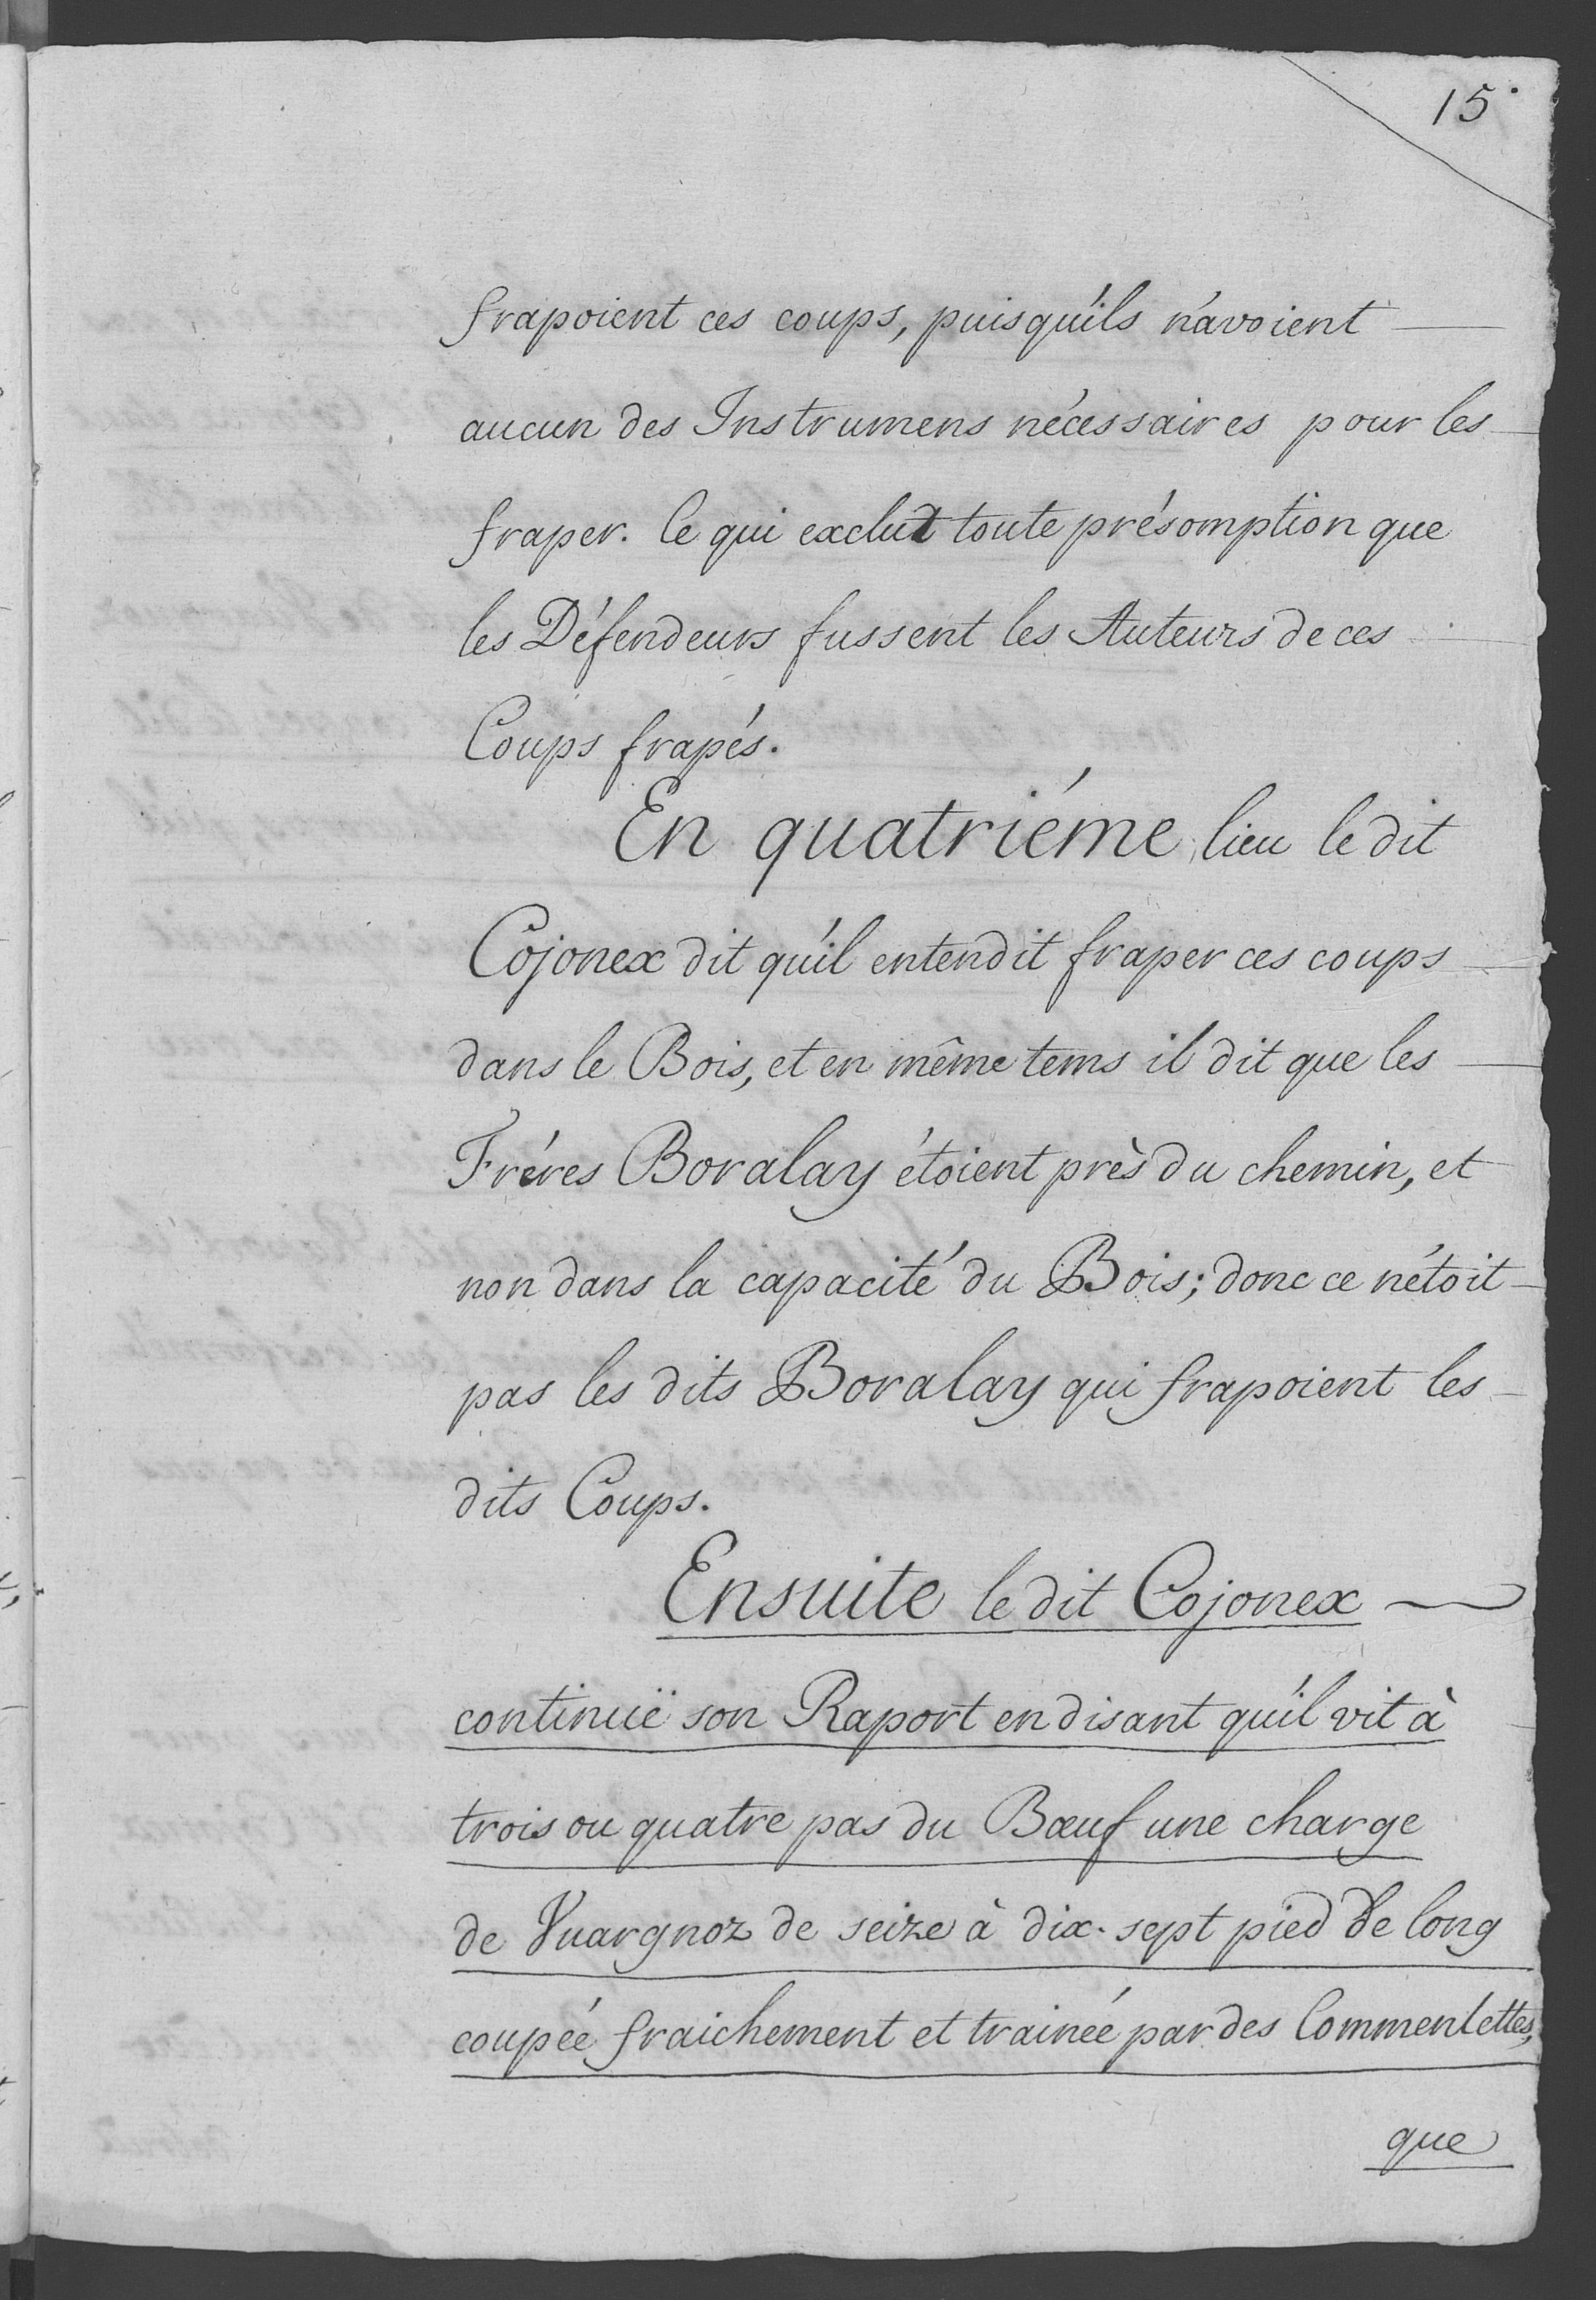 15.
frapoient ces coups, puisqu'ils n'avoient
aucun des Instrumens nécessaires pour les
fraper. Ce qui exclud toute présomption que
les Défendeurs fussent les Auteurs de ces
Coups frapés.
En quatriéme lieu le dit
Cojonex dit qu'il entendit fraper ces coups
dans le Bois, et en même tems il dit que les
Fréres Boralay étoient près du chemin, et
non dans la capacité du Bois; donc ce n'étoit
pas les dits Boralay qui frapoient les
dits Coups.
Ensuite le dit Cojonex
continuë son Raport en disant qu'il vit à
trois ou quatre pas du Bœuf une charge
de Vuargnoz de seize à dix-sept pied de long
coupée fraichement et trainée par des Commentettes,
que